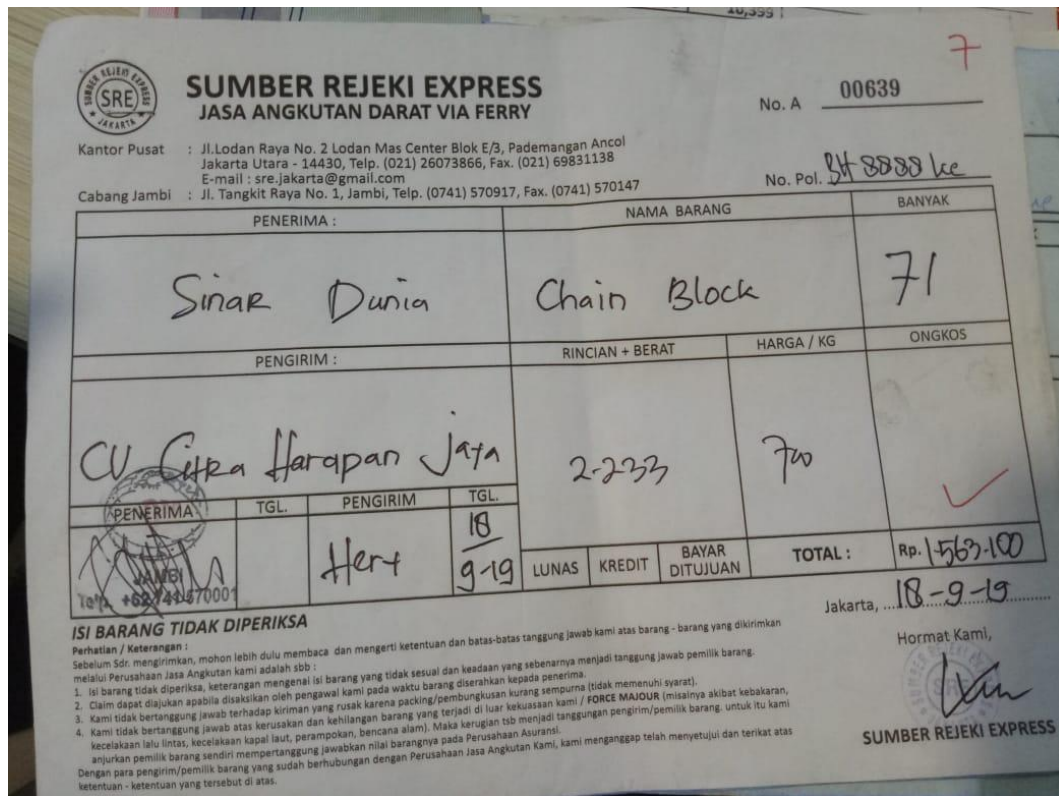 10,399
7
SUMBER REJEKI EXPRESS
SRE
JAKARTA
SUMBER REJEKI EXPRESS
JASA ANGKUTAN DARAT VIA FERRY
No. A 00639
Kantor Pusat : Jl.Lodan Raya No. 2 Lodan Mas Center Blok E/3, Pademangan Ancol
Jakarta Utara - 14430, Telp. (021) 26073866, Fax. (021) 69831138
E-mail : sre.jakarta@gmail.com
No. Pol. BH 8888 ke
Cabang Jambi : Jl. Tangkit Raya No. 1, Jambi, Telp. (0741) 570917, Fax. (0741) 570147
PENERIMA : NAMA BARANG BANYAK
Sinar Dunia Chain Block 71
PENGIRIM : RINCIAN + BERAT HARGA / KG ONGKOS
CV Citra Harapan Jaya 2-233 700
PENERIMA TGL. PENGIRIM TGL.
Hery 18
9-19
JAMBI
Telp. +62 741 570001
LUNAS KREDIT BAYAR DITUJUAN TOTAL : Rp. 1-563-100
Jakarta, 18-9-19
ISI BARANG TIDAK DIPERIKSA
Hormat Kami,
Perhatian / Keterangan :
Sebelum Sdr. mengirimkan, mohon lebih dulu membaca dan mengerti ketentuan dan batas-batas tanggung jawab kami atas barang - barang yang dikirimkan
melalui Perusahaan Jasa Angkutan kami adalah sbb :
1. Isi barang tidak diperiksa, keterangan mengenai isi barang yang tidak sesuai dan keadaan yang sebenarnya menjadi tanggung jawab pemilik barang.
2. Claim dapat diajukan apabila disaksikan oleh pengawal kami pada waktu barang diserahkan kepada penerima.
3. Kami tidak bertanggung jawab terhadap kiriman yang rusak karena packing/pembungkusan kurang sempurna (tidak memenuhi syarat).
4. Kami tidak bertanggung jawab atas kerusakan dan kehilangan barang yang terjadi di luar kekuasaan kami / FORCE MAJOUR (misalnya akibat kebakaran,
kecelakaan lalu lintas, kecelakaan kapal laut, perampokan, bencana alam). Maka kerugian tsb menjadi tanggungan pengirim/pemilik barang. untuk itu kami
anjurkan pemilik barang sendiri mempertanggung jawabkan nilai barangnya pada Perusahaan Asuransi.
Dengan para pengirim/pemilik barang yang sudah berhubungan dengan Perusahaan Jasa Angkutan Kami, kami menganggap telah menyetujui dan terikat atas
ketentuan - ketentuan yang tersebut di atas.
SUMBER REJEKI EXPRESS